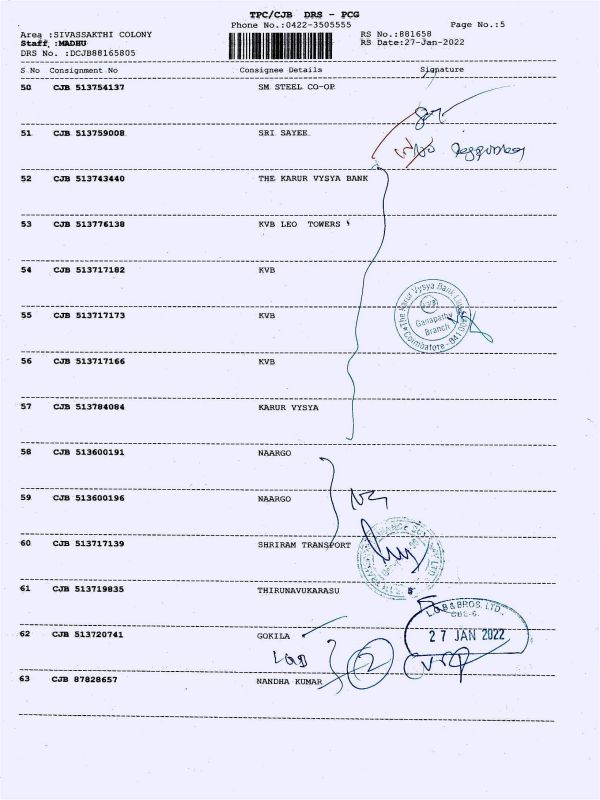 TPC/CJB DRS - PCG
Phone No.:0422-3505555
Page No.:5
Area :SIVASSAKTHI COLONY
RS No.:881658
Staff :MADHU
RS Date:27-Jan-2022
DRS No. :DCJB88165805
S No Consignment No Consignee Details Signature
50 CJB 513754137 SM STEEL CO-OP
51 CJB 513759008 SRI SAYEE
52 CJB 513743440 THE KARUR VYSYA BANK
53 CJB 513776138 KVB LEO TOWERS
54 CJB 513717182 KVB
55 CJB 513717173 KVB
The Karur Vysya Bank
Ganapathy
Branch
Coimbatore - 641 006
56 CJB 513717166 KVB
57 CJB 513784084 KARUR VYSYA
58 CJB 513600191 NAARGO
59 CJB 513600196 NAARGO
60 CJB 513717139 SHRIRAM TRANSPORT
61 CJB 513719835 THIRUNAVUKARASU
L.G.B & BROS. LTD.
CBE-6.
27 JAN 2022
62 CJB 513720741 GOKILA
LGB
2
63 CJB 87828657 NANDHA KUMAR